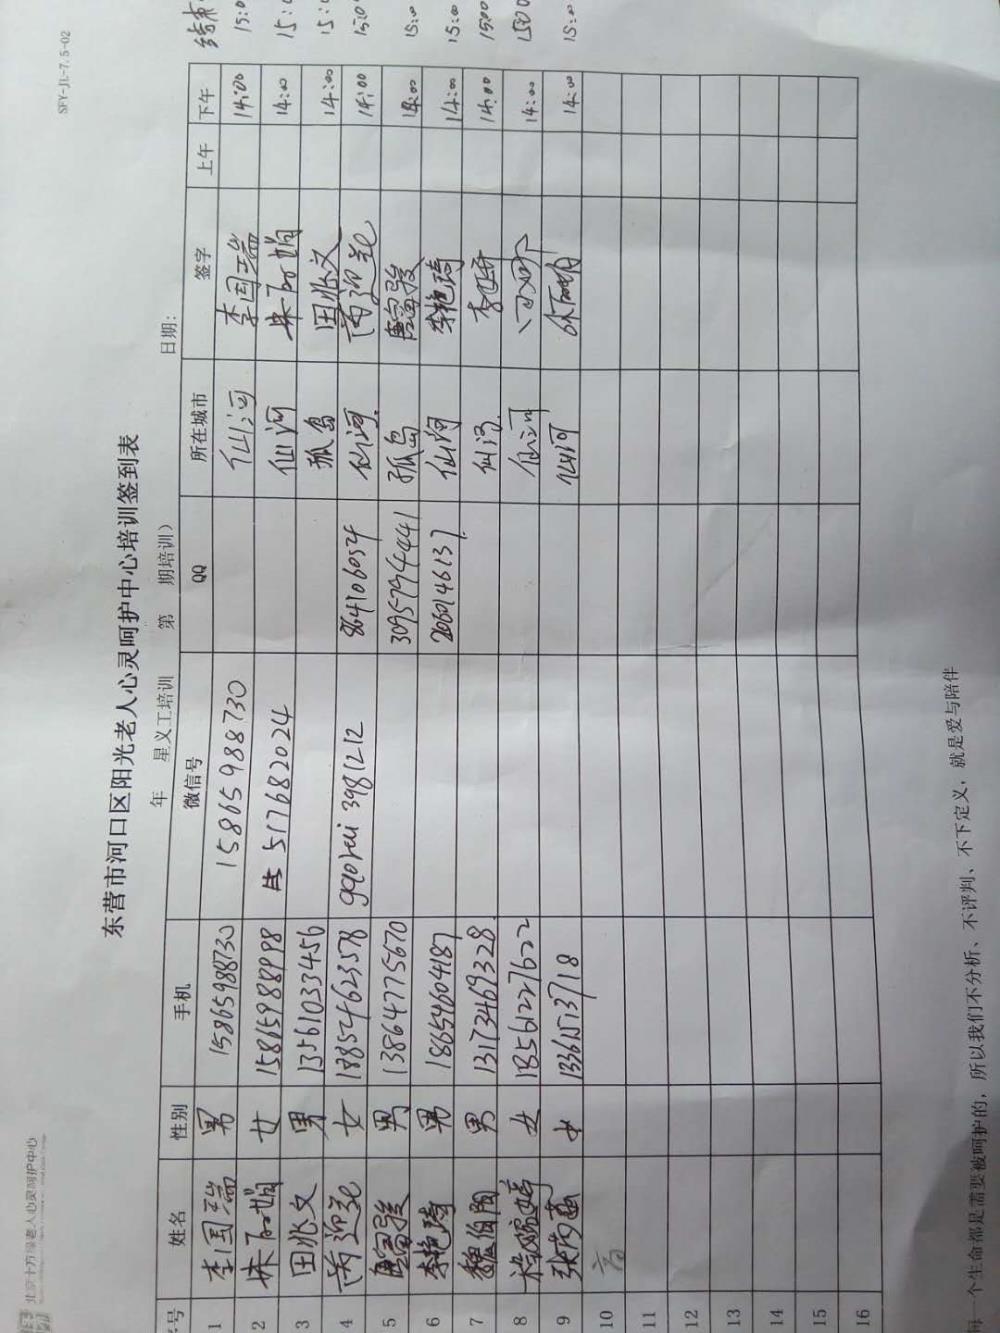 北京十方缘老人心灵呵护中心
SFY-JL-7.5-02
东营市河口区阳光老人心灵呵护中心培训签到表
年 星义工培训 第 期培训) 日期:
号 姓名 性别 手机 微信号 QQ 所在城市 签字 上午 下午 结束
1 李国瑞 男 15865988730 15865988730 仙河 李国瑞 14:00 15:0
2 女 15865988998 517682024 仙河 14:00 15:
3 田兆文 男 13561033456 孤岛 田兆文 14:00 15:
4 女 18854662378 864106054 仙河 14:00 15:0
5 唐富骏 男 13864775670 3095794441 孤岛 唐富骏 14:00 15:0
6 李艳琦 男 18654604187 2060146137 仙河 李艳琦 14:00 15:0
7 魏伯阳 男 13173469328 仙河 14:00 15:00
8 女 18561227622 仙河 14:00 1500
9 女 13361513718 仙河 14:00 15:0
10
11
12
13
14
15
16
每一个生命都是需要被呵护的, 所以我们不分析、不评判、不下定义, 就是爱与陪伴